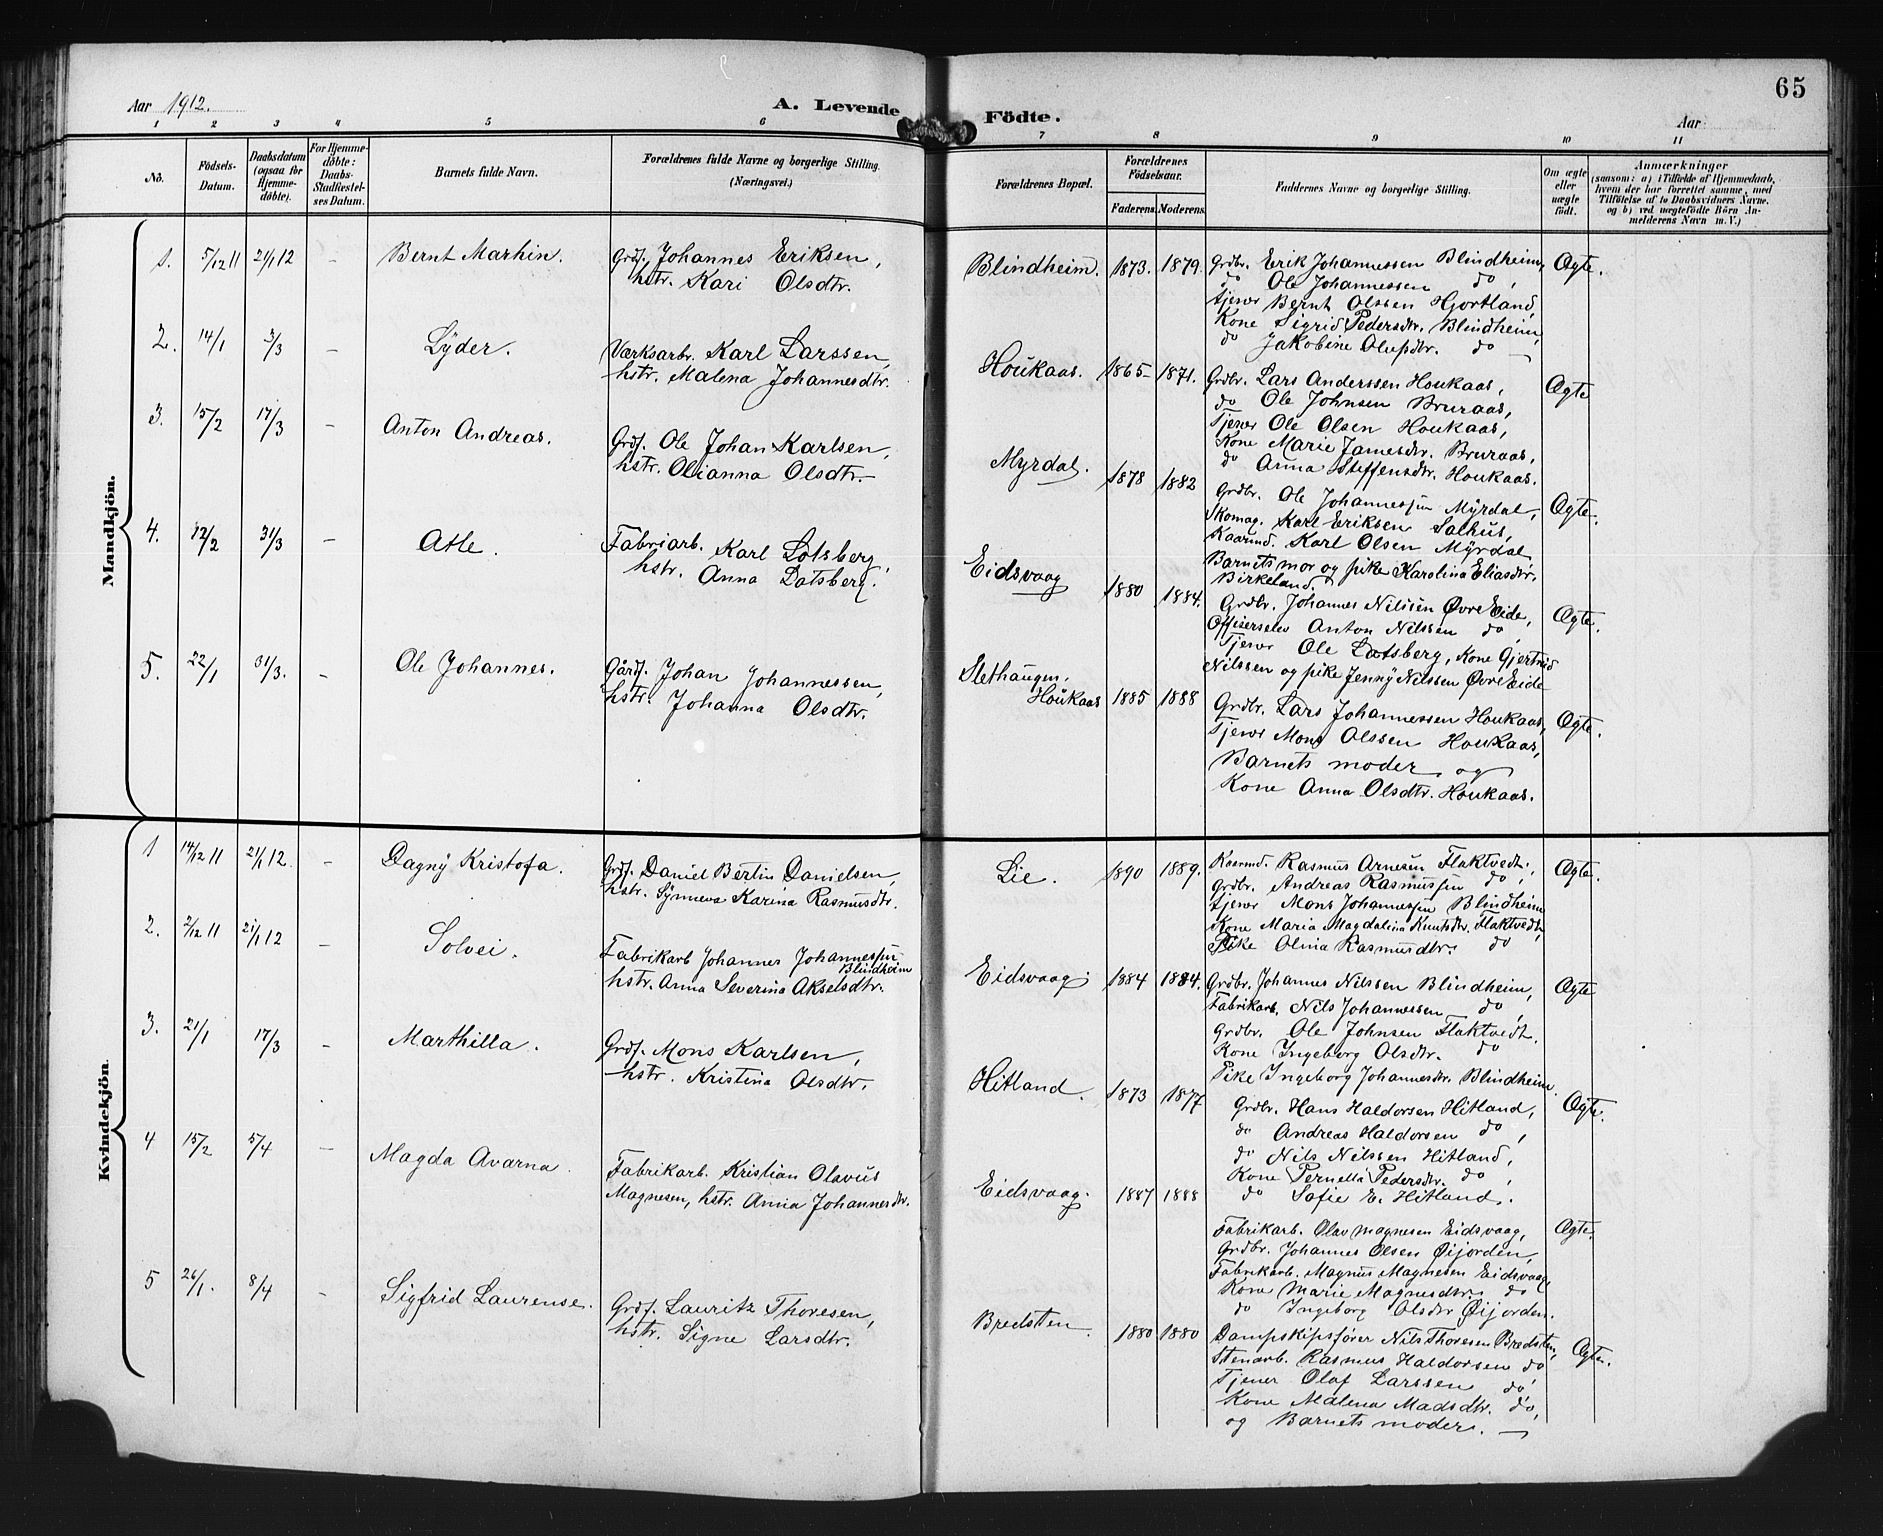 Aar 1912.
A. Levende
1 2 3 4 5 6
No. Födsels-Datum. Daabsdatum (ogsaa for Hjemmedøbte). For Hjemmedøbte: Daabs-Stadfæstelses Datum. Barnets fulde Navn. Forældrenes fulde Navne og borgerlige Stilling. (Næringsvei.)
Mandkjön.
1. 5/12 11 21/1 12 – Bernt Marhin. Grdf. Johannes Eriksen,
hstr. Kari Olsdtr.
2. 14/1 3/3 – Lÿder. Værksarbr. Karl Larssen,
hstr. Malena Johannesdtr.
3. 15/2 17/3 – Anton Andreas. Grdf. Ole Johan Karlsen,
hstr. Olianna Olsdtr.
4. 12/2 31/3 – Atle. Fabriarb. Karl Lotsberg,
hstr. Anna Datsberg.
5. 22/1 31/3. – Ole Johannes. Gårdf. Johan Johannessen,
hstr. Johanna Olsdtr.
Kvindekjön.
1 14/12 11 21/1 12. – Dagnÿ Kristofa. Grdf. Daniel Bertin Danielsen,
hstr. Sÿnneva Karina Rasmusdtr.
2. 2/12 11 21/1 12 – Solvei. Fabrikarb Johannes Johannessen
Blindheim
hstr. Anna Severina Akselsdtr.
3. 21/1 17/3 – Marthilla. Grdf. Mons Karlsen,
hstr. Kristina Olsdtr.
4 15/2 5/4 – Magda Avarna. Fabrikarb. Kristian Olavus
Magnesen, hstr. Anna Johannesdtr.
5 26/1. 8/4 – Sigfrid Laurense. Grdf. Lauritz Thoresen,
hstr. Signe Larsdtr.
65
Födte.
Aar
7 8 9 10 11
Forældrenes Bopæl. Forældrenes Födselsaar. Faderens Moderens. Faddernes Navne og borgerlige Stilling. Om ægte eller uægte født. Anmærkninger
(saasom: a) i Tilfælde af Hjemmedaab,
hvem der har forrettet samme, med
Tilføielse af to Daabsvidners Navne.
og b) ved uægtefödte Börn An-
melderens Navn m. V.)
Blindheim. 1873. 1879. Grdbr. Erik Johannessen Blindheim, Ægte.
do Ole Johannessen do,
Tjener Bernt Olssen Hjortland,
Kone Sigrid Pedersdtr. Blindheim,
do Jakobine Olufsdtr. do –
Houkaas. 1865– 1871. Grdbr. Lars Anderssen Houkaas, Ægte
do Ole Johnsen Bruraas,
Tjener Ole Olsen Houkaas,
Kone Marie Jamesdtr. Bruraas,
do Anna Steffensdtr. Houkaas.
Myrdal. 1878 1882 Grdbr. Ole Johannessen Mÿrdal, Ægte.
Skomag. Karl Eriksen Salhus,
Karl Olsen Mÿrdal
Barnets mor og pike Karolina Eliasdtr.
Birkeland.
Eidsvaag 1880 1884. Grdbr. Johannes Nilssen Øvre Eide, Ægte.
Offiserselev Anton Nilssen do,
Tjener Ole Latsberg, Kone Gjertrud
Nilssen og pike Jennÿ Nilssen Øvre Eide
Slethaugen.
Houkaas 1885 1888 Grdbr. Lars Johannessen Houkaas, Ægte.
Tjener Mons Olssen Houkaas,
Barnets moder og
Kone Anna Olsdtr. Houkaas.
Lie. 1890 1889. Rasmus Arnesen Flaktvedt, Ægte.
Grdbr. Andreas Rasmussen do,
Tjener Mons Johannessen Blindheim
Kone Maria Magdalina Knutsdtr. Flaktvedt,
Pike Olina Rasmusdtr. do
Eidsvaag. 1884 1884. Grdbr. Johannes Nilssen Blindheim, Ægte
Fabrikarb. Nils Johannessen do,
Grdbr. Ole Johnsen Flaktvedt.
Kone Ingeborg Olsdtr. do
Pike Ingeborg Johannesdtr. Blindheim.
Hitland. 1873 1877 Grdbr. Hans Haldorsen Hitland, Ægte.
do Andreas Haldorsen do,
do Nils Nilssen Hitland,
Kone Pernella Pedersdtr. do,
do Sofie E. Hitland.
Eidsvaag. 1887 1888 Fabrikarb. Olav Magnesen Eidsvaag, Ægte.
Grdbr. Johannes Olsen Øijorden,
Fabrikarb. Magnus Magnesen Eidsvaag
Kone Marie Magnesdtr. do
do Ingeborg Olsdtr Øijorden.
Bredsten. 1880 1880 Dampskipsfører Nils Thoresen Bredsten, Ægte.
Stenarb. Rasmus Haldorsen do
Tjener Olaf Larssen do,
Kone Malena Madsdtr. do,
og Barnets moder. –